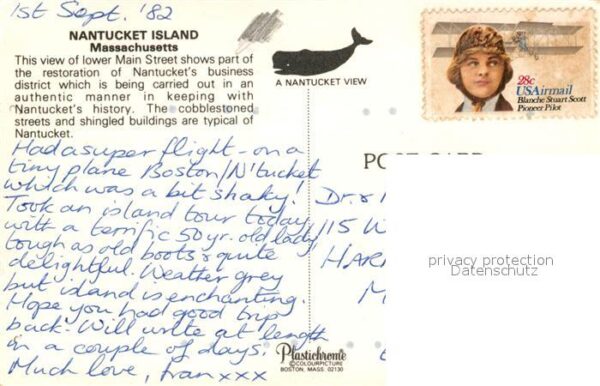 1st Sept. '82
NANTUCKET ISLAND
Massachusetts
This view of lower Main Street shows part of
the restoration of Nantucket's business
district which is being carried out in an
authentic manner in keeping with
Nantucket's history. The cobblestoned
streets and shingled buildings are typical of
Nantucket.
A NANTUCKET VIEW
28c
USAirmail
Blanche Stuart Scott
Pioneer Pilot
Had a super flight - on a
tiny plane Boston/N'tucket
which was a bit shaky!
Took an island tour today
with a terrific 50 yr. old lady
tough as old boots & quite
delightful. Weather grey
but island is enchanting.
Hope you had good trip
back. Will write at length
in a couple of days.
Much love, Fran xxx
Dr. &
115 W
HAR
M
privacy protection
Datenschutz
Plastichrome
BY COLOURPICTURE
BOSTON, MASS. 02130